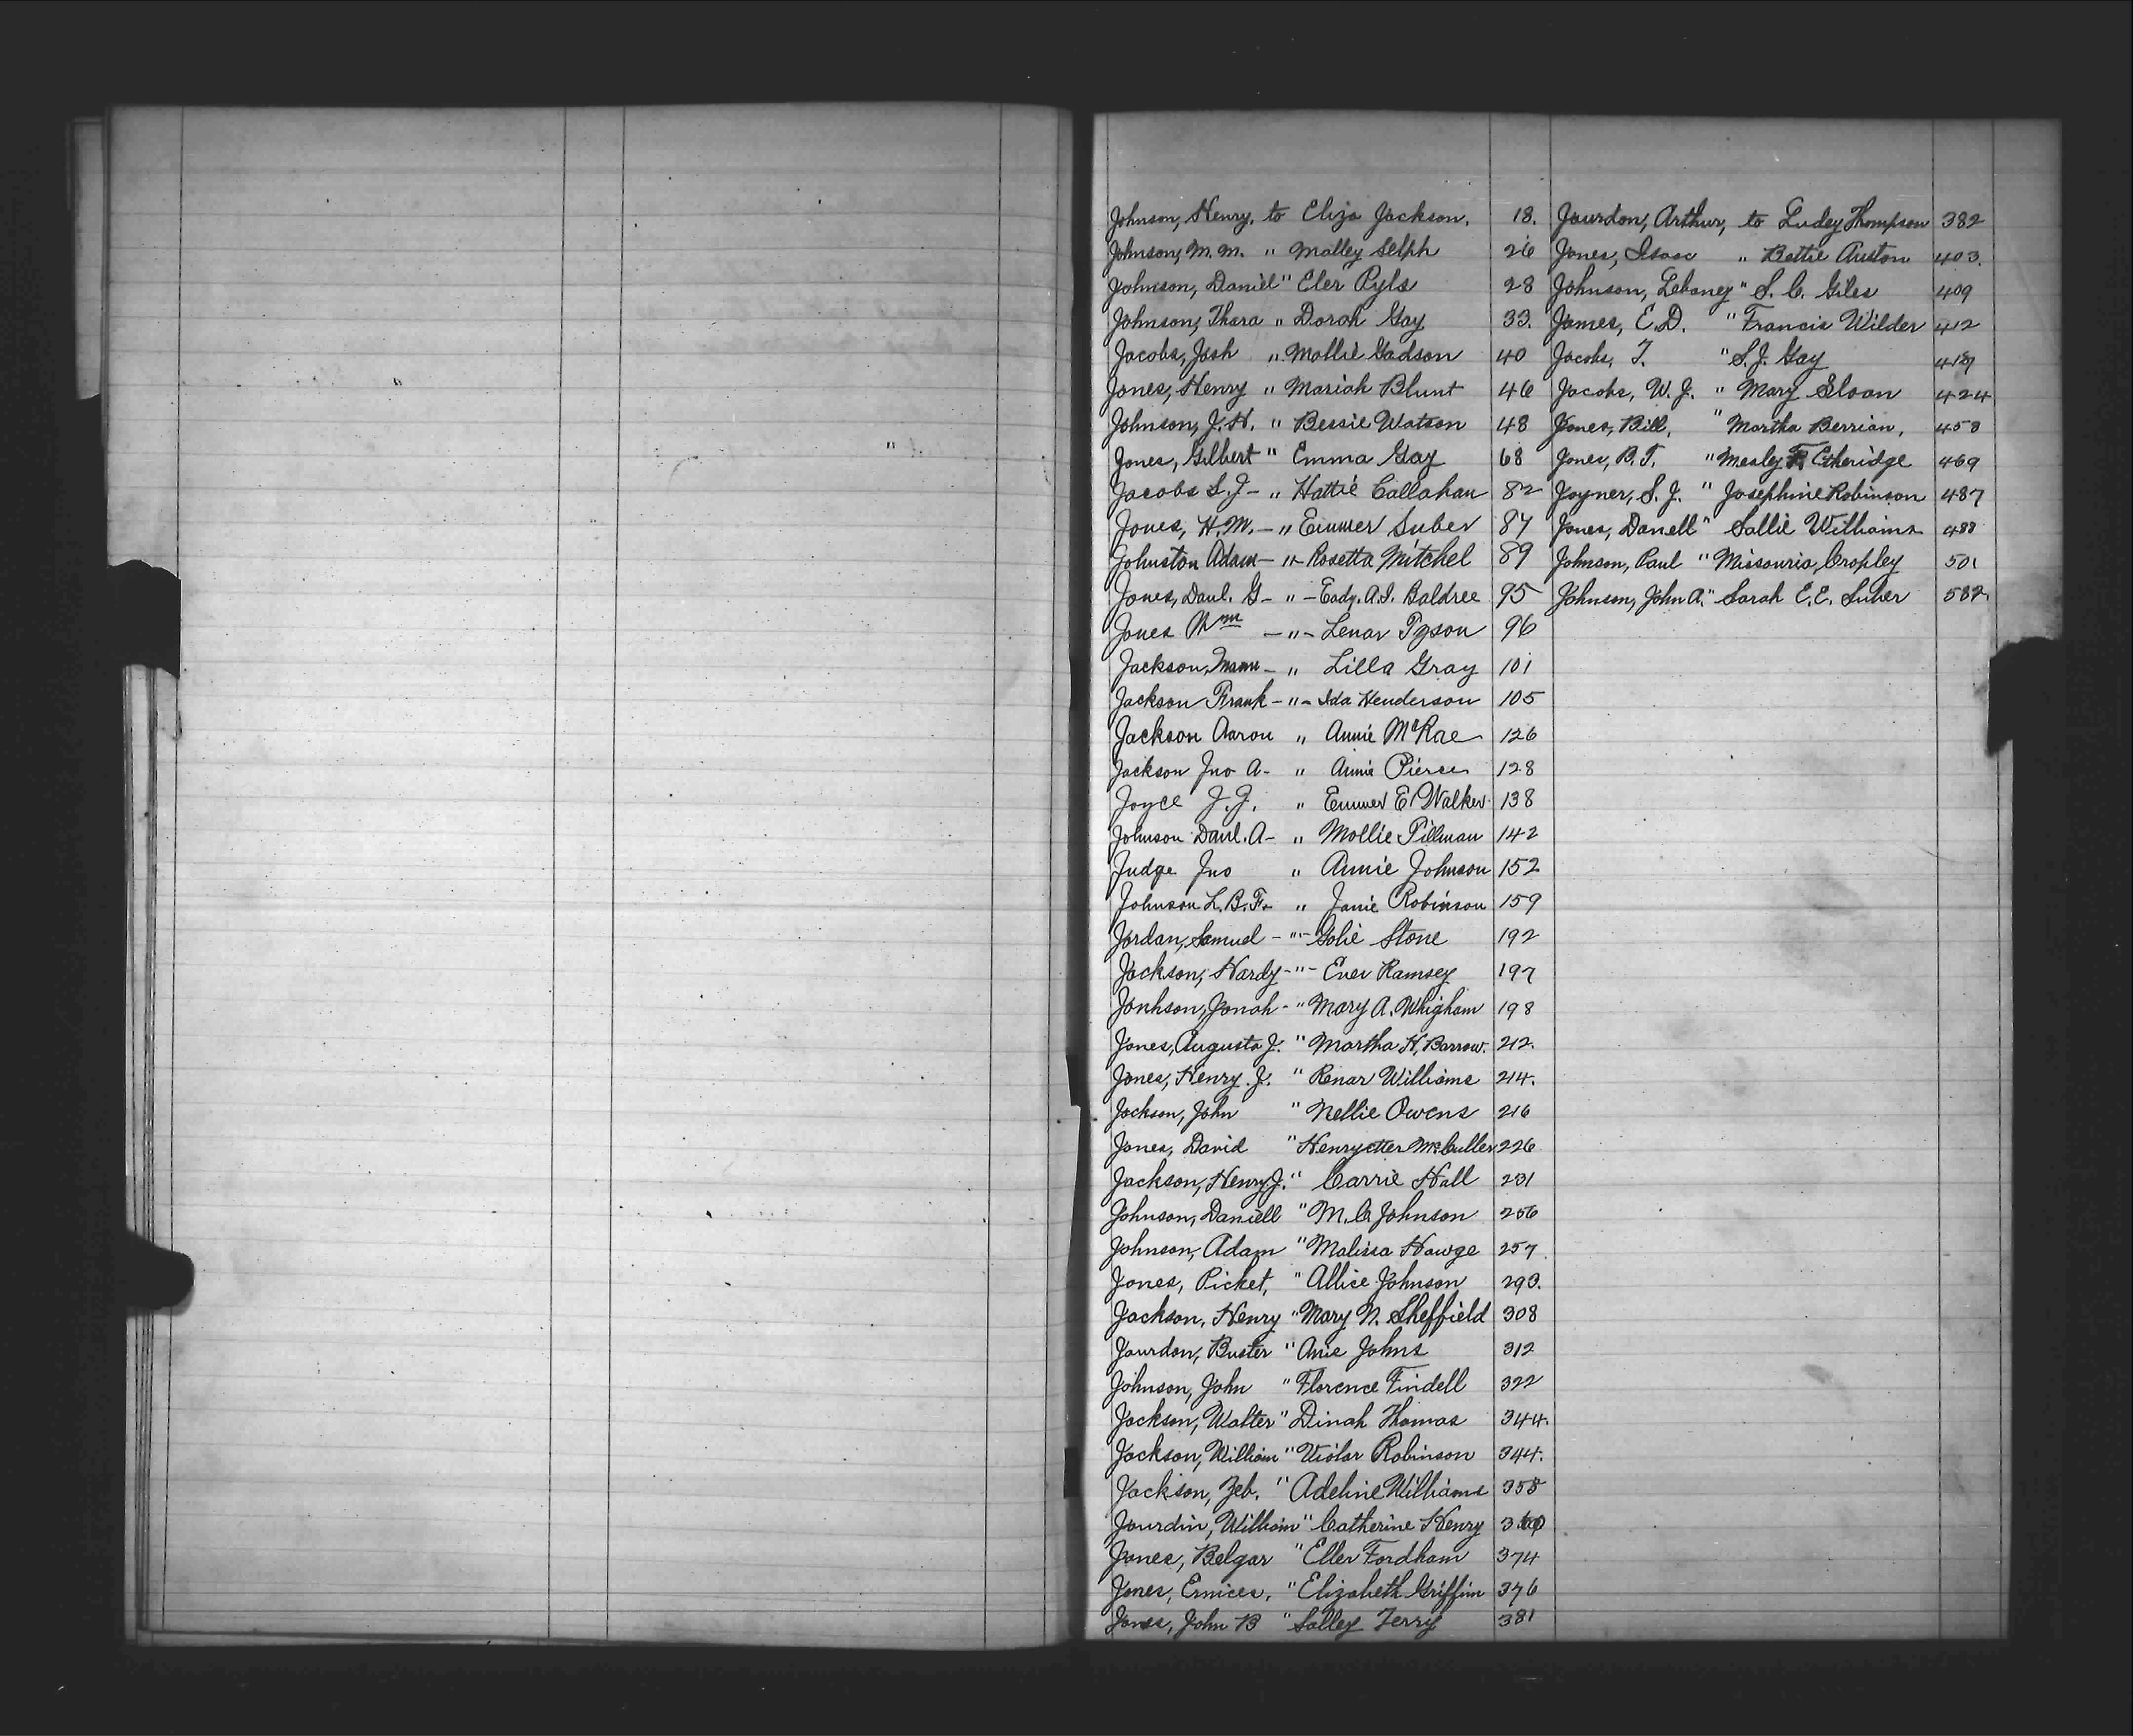 Johnson, Henry. to Eliza Jackson. 18.
Johnson, M. M. " Malley Selph 26
Johnson, Daniel " Eler Pyls 28
Johnson, Thara " Dorah Gay 33.
Jacobs, Josh " Mollie Gadson 40
Jones, Henry " Mariah Blunt 46
Johnson, J. H. " Bessie Watson 48
Jones, Gilbert " Emma Gay 68
Jacobs S. J - " Hattie Callahan 82
Jones, H. M. - " Emmer Suber 87
Johnston Adam - " - Rosetta Mitchel 89
Jones, Danl. G - " - Eady. A. I. Baldree 95
Jones Wm - " - Lenar Tyson 96
Jackson, - " Lilla Gray 101
Jackson Frank - " - Ida Henderson 105
Jackson Aaron " Annie McRae 126
Jackson Jno A - " Annie Pierce 128
Joyce J. J. " Emmer E. Walker 138
Johnson Danl. A - " Mollie Pillman 142
Judge Jno " Annie Johnson 152
Johnson L. B. F. " Janie Robinson 159
Jordan, Samuel - " - Golie Stone 192
Jackson, Hardy - " - Ever Ramsey 197
Jonhson, Jonah - " Mary A. Whigham 198
Jones, Augusta J. " Martha H. Barrow. 212.
Jones, Henry. J. " Renar Williams 214.
Jackson, John " Nellie Owens 216
Jones, David " Henryetter McCuller 226
Jackson, Henry J. " Carrie Hall 231
Johnson, Daniell " M. C. Johnson 256
Johnson, Adam " Malissa Hawge 257
Jones, Picket, " Allice Johnson 293.
Jackson, Henry " Mary N. Sheffield 308
Jourdon, Buster " Anie Johns 312
Johnson, John " Florence Findell 322
Jackson, Walter " Dinah Thomas 344.
Jackson, William " Violar Robinson 344.
Jackson, Zeb. " Adeline Williams 358
Jourdin, William " Catherine Henry
Jones, Belgar " Eller Fordham 374
Jones, Ernices, " Elizabeth Griffin 376
Jones, John B " Salley Terry 381
Jourdon, Arthur, to Ludey Thompson 382
Jones, Isaac " Bettie Auston 403.
Johnson, Lebaney " S. C. Giles 409
James, E. D. " Francis Wilder 412
Jacobs, T. " S. J. Gay
Jacobs, W. J. " Mary Sloan 424
Jones, Bill, " Martha Berrian, 458
Jones, B. T. " Mesley Etheridge 469
Joyner, S. J. " Josephine Robinson 487
Jones, Danell " Sallie Williams 488
Johnson, Paul " Missouria Cropley 501
Johnson, John A. " Sarah E. E. Suber 582.